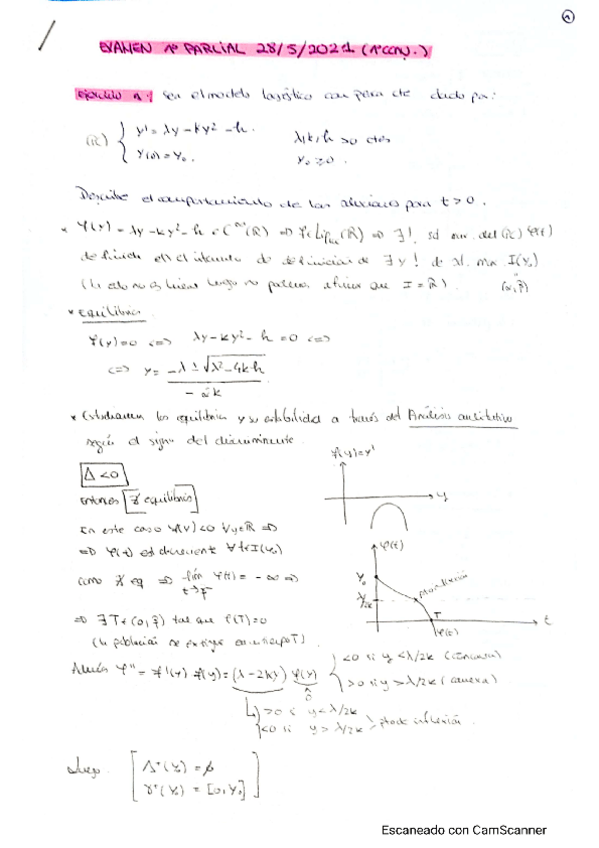 EXAMEN 1º PARCIAL 28/5/2021 (1ª CONV.)
Ejercicio 1: Sea el modelo logístico con pesca cte dado por:
(PC) { y' = λy - ky² - h. λ, k, h > 0 ctes
y(0) = y₀. y₀ ≥ 0.
Describe el comportamiento de las soluciones para t > 0.
* f(y) = λy - ky² - h ∈ C^∞(ℝ) ⇒ f ∈ Lip_loc(ℝ) ⇒ ∃! sol max. del (PC) φ(t)
definida en el intervalo de definición de ∃ y ! de sol. max I(y₀)
(α, β)
* Equilibrios
f(y) = 0 ⇔ λy - ky² - h = 0 ⇔
⇔ y = (-λ ± √(λ² - 4k·h)) / (-2k)
* Estudiaremos los equilibrios y su estabilidad a través del Análisis cualitativo
según el signo del discriminante.
f(y) = y'
y
Δ < 0
Entonces ∄ equilibrios
En este caso f(y) < 0 ∀y ∈ ℝ ⇒
⇒ φ(t) es decreciente ∀t ∈ I(y₀)
como ∄ eq ⇒ lim φ(t) = -∞ ⇒
t→β⁻
φ(t)
y₀
λ/2k
pto inflexión
T
t
φ(t)
⇒ ∃ T ∈ (0, β) tal que φ(T) = 0
(la población se extingue en un tiempo T)
Además φ'' = f'(y) f(y) = (λ - 2ky) f(y) { < 0 si y < λ/2k (cóncava)
> 0 si y > λ/2k (convexa)
> 0 si y < λ/2k
< 0 si y > λ/2k } pto de inflexión.
Luego [ Λ⁺(y₀) = ∅
γ⁺(y₀) = [0, y₀] ]
Escaneado con CamScanner